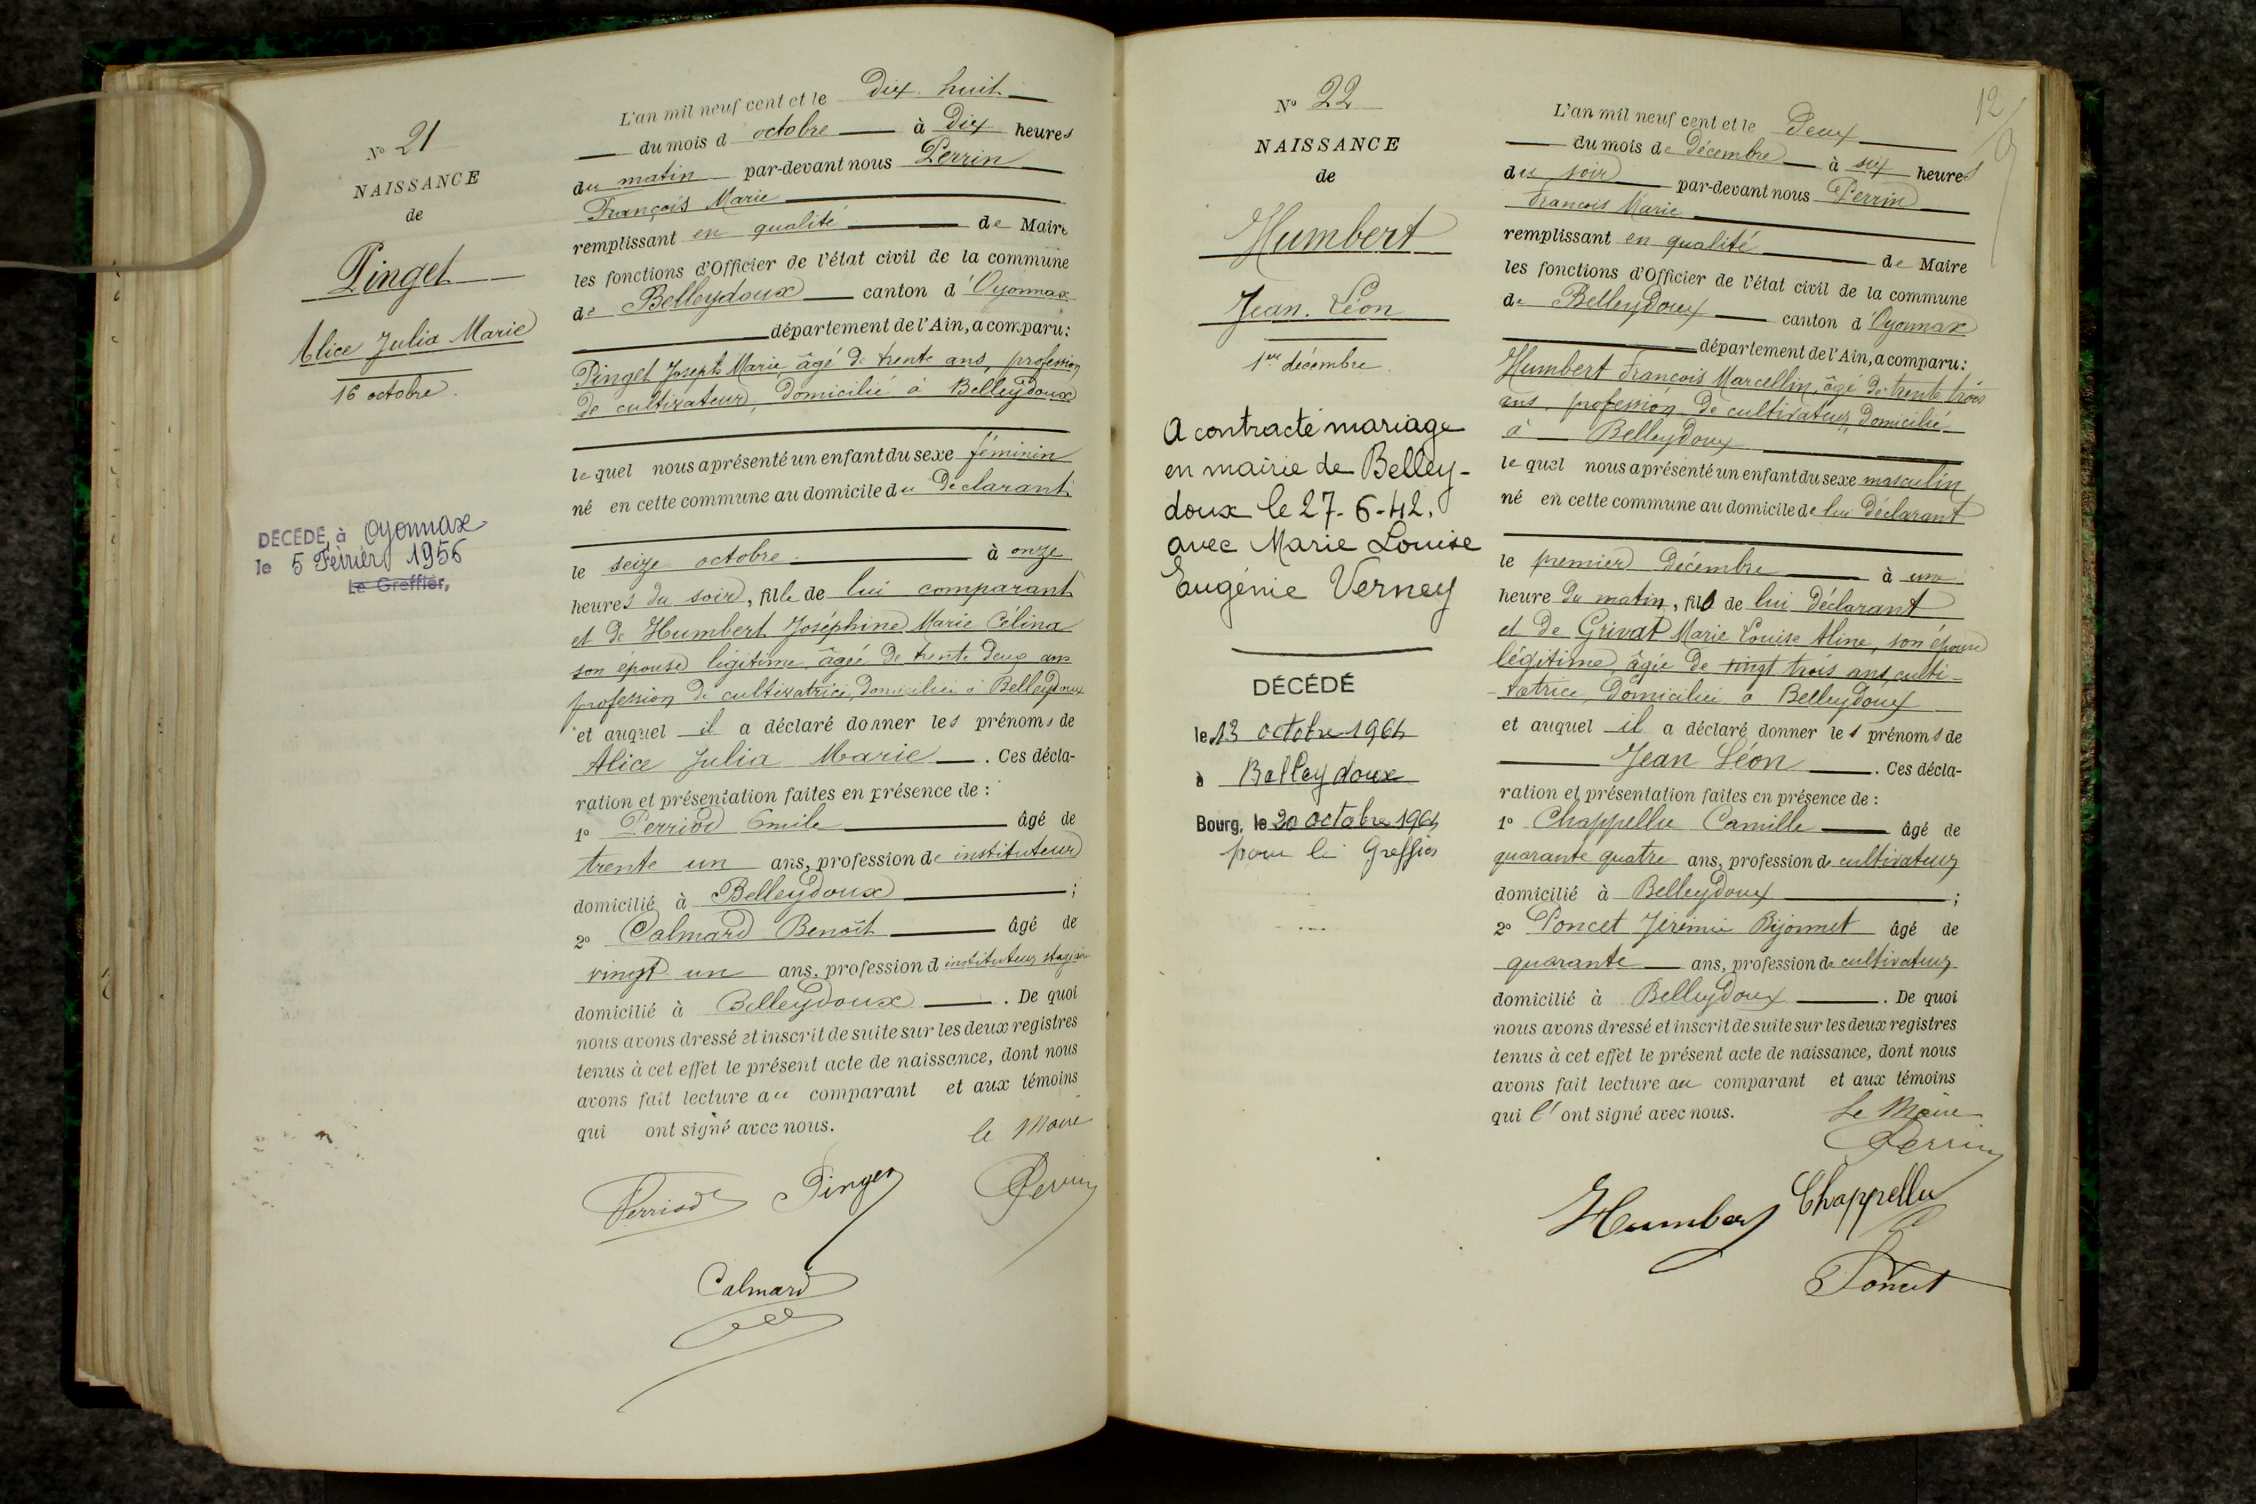 N° 21
NAISSANCE
de
Pinget
Alice Julia Marie
16 octobre.
DÉCÉDÉ, à Oyonnax
le 5 Février 1956
Le Greffier,
L'an mil neuf cent et le Dix huit
du mois d octobre à Dix heures
du matin par-devant nous Perrin
François Marie
remplissant en qualité de Maire
les fonctions d'Officier de l'état civil de la commune
de Belleydoux canton d'Oyonnax
département de l'Ain, a comparu:
Pinget Joseph Marie, âgé de trente ans, profession
de cultivateur, Domicilié à Belleydoux
le quel nous a présenté un enfant du sexe féminin
né en cette commune au domicile du Déclarant
le seize octobre à onze
heures du soir, fille de lui comparant
et de Humbert Joséphine Marie Célina
son épouse légitime, âgée de trente deux ans
profession de cultivatrice, domiciliée à Belleydoux
et auquel il a déclaré donner les prénoms de
Alice Julia Marie. Ces décla-
ration et présentation faites en présence de :
1° Perriod Emile âgé de
trente un ans, profession de instituteur
domicilié à Belleydoux ;
2° Calmard Benoît âgé de
vingt un ans, profession d instituteur stagiaire
domicilié à Belleydoux. De quoi
nous avons dressé et inscrit de suite sur les deux registres
tenus à cet effet le présent acte de naissance, dont nous
avons fait lecture au comparant et aux témoins
qui ont signé avec nous.
le Maire
Perriod Pinget Perrin
Calmard
12
N° 22
NAISSANCE
de
Humbert
Jean. Léon
1er décembre.
A contracté mariage
en mairie de Belley-
doux le 27-6-42.
avec Marie Louise
Eugénie Verney
DÉCÉDÉ
le 13 octobre 1964
à Belleydoux
Bourg, le 20 octobre 1964
pour le Greffier
L'an mil neuf cent et le Deux
du mois de Décembre à six heures
du soir par-devant nous Perrin
François Marie
remplissant en qualité de Maire
les fonctions d'Officier de l'état civil de la commune
de Belleydoux canton d'Oyonnax
département de l'Ain, a comparu:
Humbert François Marcellin, âgé de trente trois
ans, profession de cultivateur, Domicilié
à Belleydoux
le quel nous a présenté un enfant du sexe masculin
né en cette commune au domicile de lui Déclarant
le premier Décembre à une
heure du matin, fils de lui déclarant
et de Grivat Marie Louise Aline, son épouse
légitime, âgée de vingt trois ans, culti-
vatrice, Domiciliée à Belleydoux
et auquel il a déclaré donner les prénoms de
Jean Léon. Ces décla-
ration et présentation faites en présence de :
1° Chappellu Camille âgé de
quarante quatre ans, profession de cultivateur
domicilié à Belleydoux ;
2° Poncet Jérémie Bijonnet âgé de
quarante ans, profession de cultivateur
domicilié à Belleydoux. De quoi
nous avons dressé et inscrit de suite sur les deux registres
tenus à cet effet le présent acte de naissance, dont nous
avons fait lecture au comparant et aux témoins
qui l'ont signé avec nous.
Le Maire
Perrin
Humbert Chappellu
Poncet